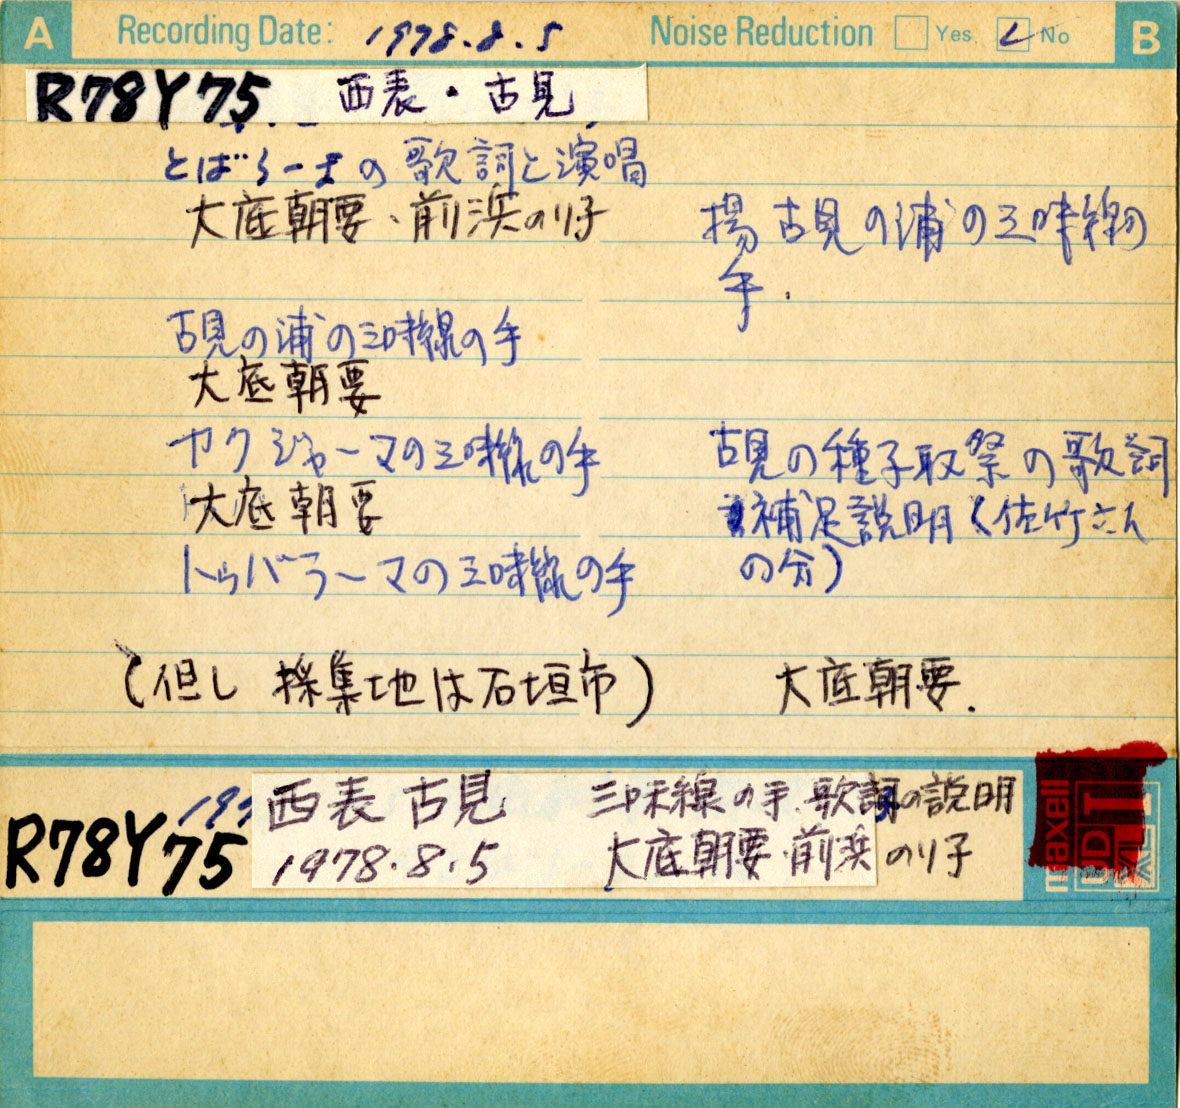 A Recording Date: 1978.8.5 Noise Reduction Yes No B
R78Y75 西表・古見
とばらーまの歌詞と演唱
大底朝要、前浜のり子
古見の浦の三味線の手
大底朝要
カクジャーマの三味線の手
大底朝要
トゥバラーマの三味線の手
(但し 採集地は石垣市)
揚古見の浦の三味線の
手.
古見の種子取祭の歌詞
補足説明(佐竹さん
の分)
大底朝要.
R78Y75 197
西表 古見 三味線の手、歌詞の説明
1978.8.5 大底朝要・前浜のり子
maxell
UD
XL I